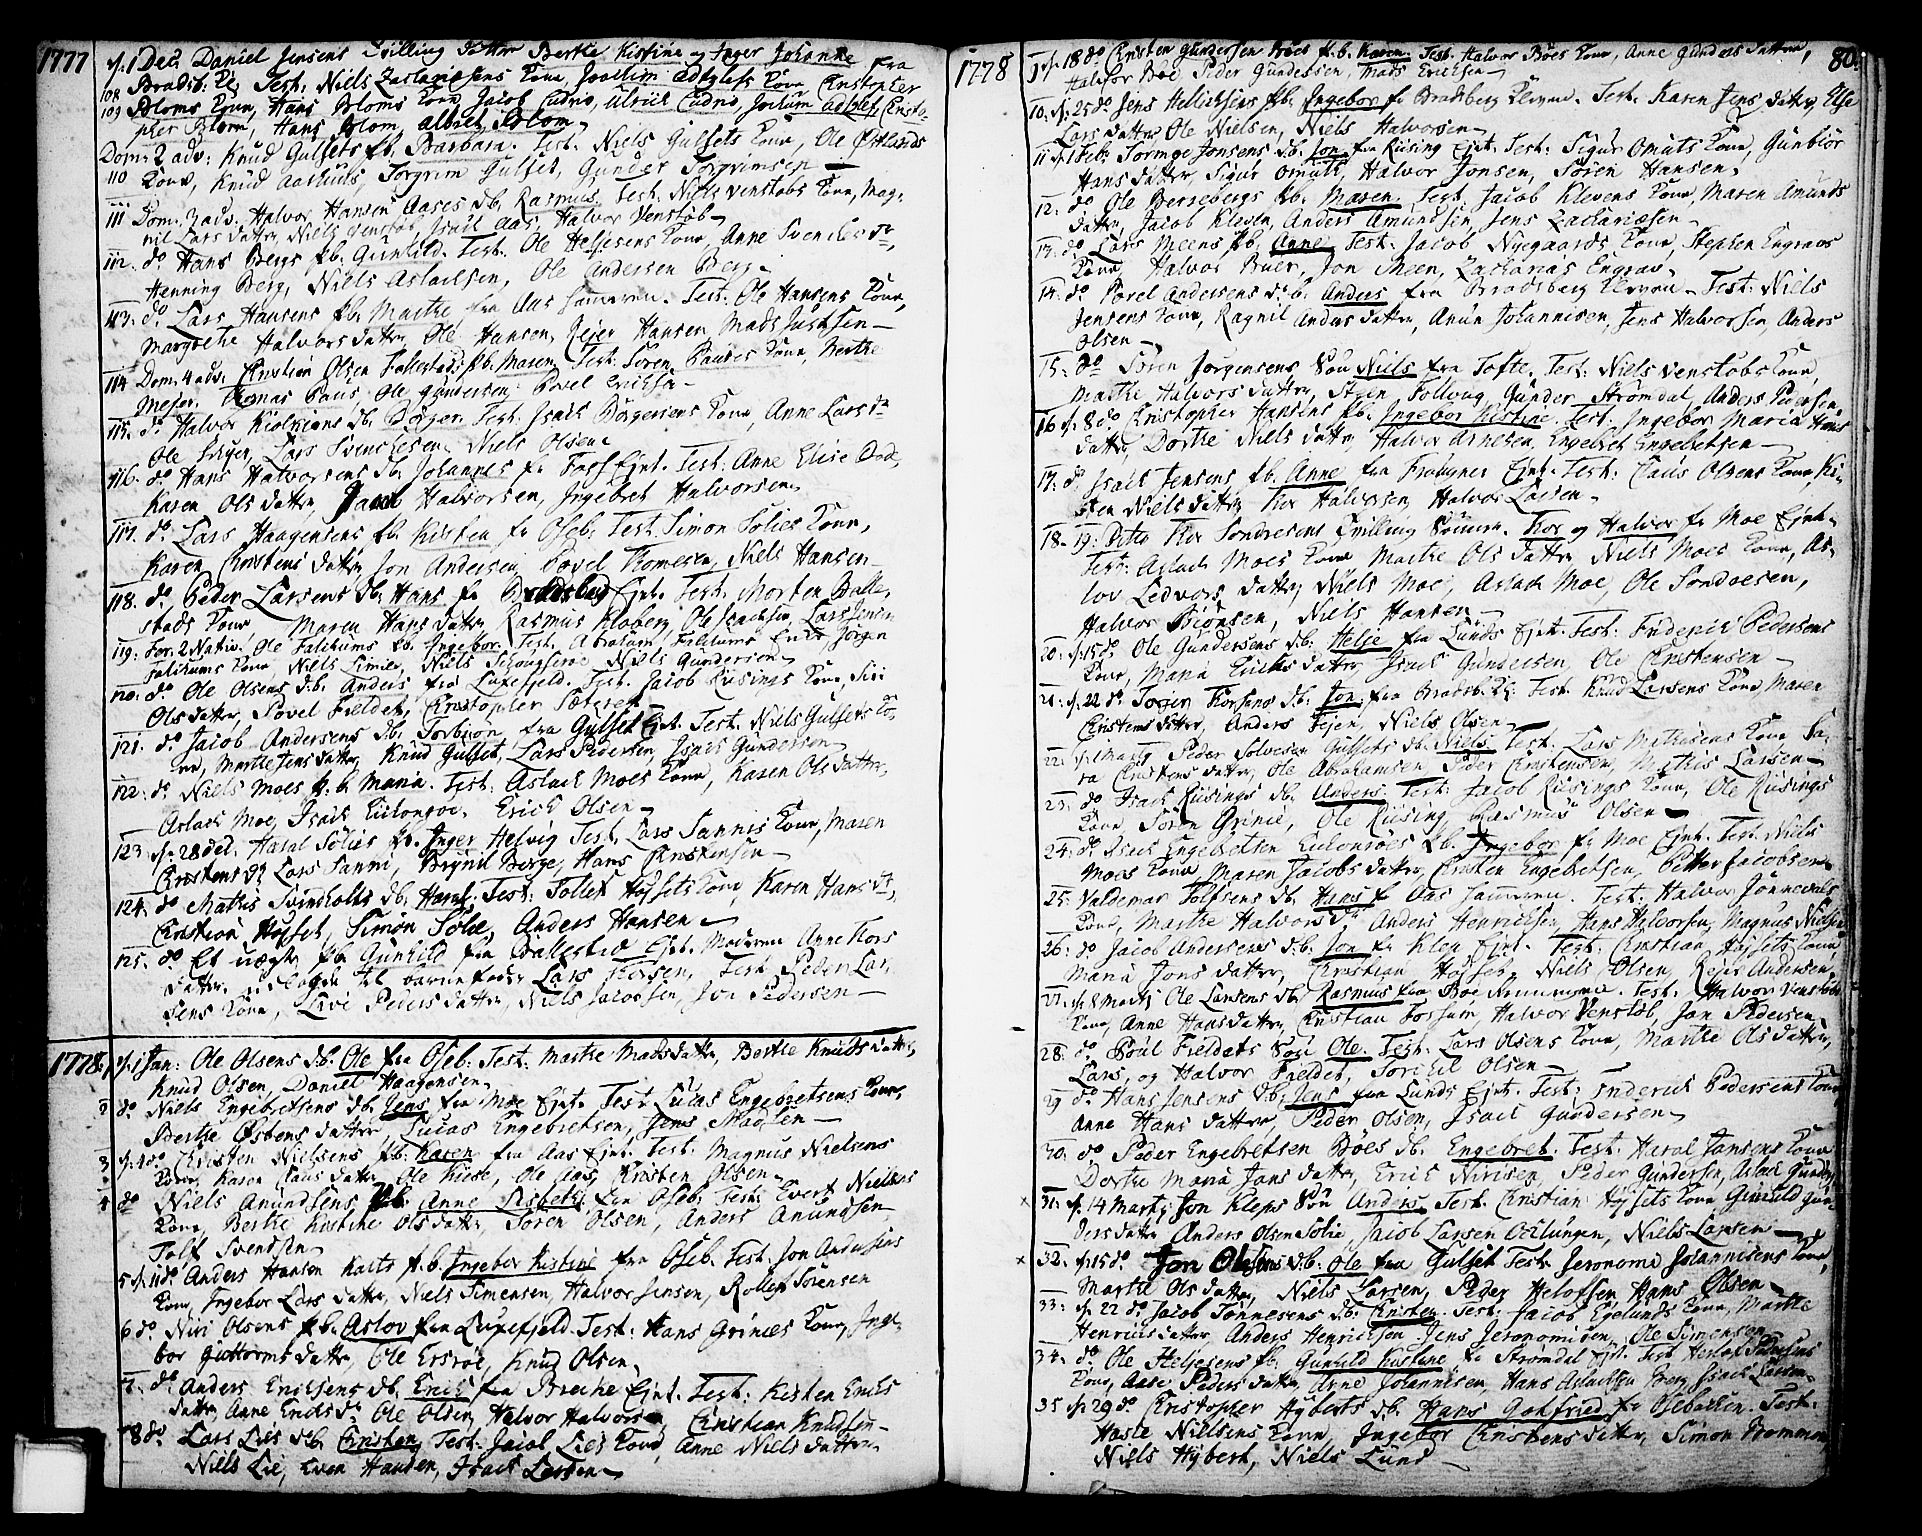 1777
d: 1 Dec. Daniel Jensens Tvilling døttre Berthe Kistine og Inger Johanne fra
108 Bradsb: Kl. Test: Niels Zachariæsens Kone, Joachim Adzlefs Kone Christopher
109 Bloms Kone, Hans Bloms Kone Jacob Cudrio, Ulrick Cudrio, Jochum Adzlef, Christo-
pher Blom, Hans Blom, Albret Blom.
Dom: 2 adv: Knud Gulsets pb. Barbara. Test: Niels Gulsets Kone, Ole Østlands
110 Kone, Knud Aarhuus, Torgrim Gulset, Gunder Torgrimsen
111 Dom. 3 adv. Halvor Hansen Aases db. Rasmus. Test. Niels Venstøbs Kone, Mag-
nil Lars datter, Niels Venstøb, Isach Aas, Halvor Venstøb
112. do Hans Bergs pb. Gunild. Test. Ole Heljesens Kone, Anne Svenches dr,
Henning Berg, Niels Aslachsen, Ole Andersen Berg.
113. do Lars Hansens pb. Marthe fra Aas sammen. Test: Ole Hansens Kone,
Margrethe Halvors datter, Ole Hansen, Rejer Hansen, Mads Justsen
114 Dom. 4 adv. Christian Olsen Follestads pb. Maren. Test. Søren Pauses Kone, Berthe
Mejer, Tomas Paus, Ole Gundersen, Povel Ericksen
115. do Halvor Kiolnens db. Børger. Test. Isach Børgersens Kone, Anne Lars dr
Ole, Lars Svenchesen, Niels Olsen
116. do Hans Halvorsens db. Johannes fr Foss Ejet. Test: Anne Elise Dod,
Karen Ols datter, Jacob Halvorsen, Ingebret Halvorsen
117. do Lars Haagensens pb. Kirsten fr Oseb. Test. Simon Solies Kone,
Karen Christens datter, Jon Andersen, Povel Thomesen, Niels Hansen
118. do Peder Larsens db. Hans fr Ballestad Ejet. Test. Morten Balle-
stads Kone Maren Hans datter, Rasmus Floberg, Ole Isachsen, Lars Jensen
119. Fer. 2 Nativ. Ole Falchums pb. Ingebor. Test. Abraham Falchums Enke, Jørgen
Falchums Kone, Niels Limier, Niels, Niels Gundersen
120. do Ole Olsens db. Anders fra Luxefjeld. Test. Jacob Riisings Kone, Siri
Ols datter, Povel Fieldet, Christopher Sæteret
121. do Jacob Andersens db. Torbiøn fra Gulset Ejet. Test. Niels Gulsets Ko-
ne, Marthe Jens datter, Knud Gulset, Lars Pedersen, Isach Gundersen
122. do Niels Moes p. b. Maria. Test. Aslach Moes Kone, Karen Ols datter,
Aslach Moe, Isach Eichonroe, Erick Olsen
123 d. 28 det. Haral Solies pb. Inger Helvig Test. Lars Sannis Kone, Maren
Christens dr Lars Sanni, Brynil Borge, Hans Christensen
124. do Mathis Svindholts db. Haral. Test: Tollef Højsets Kone, Karen Hans dr,
Christian Højset, Simon Solie, Anders Hansen
125. do Et uægte pb. Gunhild fra Ballestad Ejet. Moderen Anne Thors
datter. udlagde til barnefader Lars Torsen, Test Peder Lar-
sens Kone, Live Peders datter, Niels Jacobsen, Jon Pedersen
1778. 1 d. 1 Jan: Ole Olsens db. Ole fra Oseb. Test. Marthe Mads datter, Berthe Knuds datter,
Knud Olsen, Daniel Haagensen
2 do Niels Engebretsens db. Jens fra Moe Ejet. Test. Lucas Engebretsens Kone,
Berthe Osbens datter, Lucas Engebretsen, Jens Madsen
3 d. 4 do Christen Nielsens pb. Karen fra Aas Ejet. Test: Magnus Nielsens
Kone, Karen Claus datter, Ole Kiese, Ole Aas, Christen Olsen
4 do Niels Anundsens pb. Anne Lisbeth fra Oseb. Test: Evert Nielsens
Kone, Berthe Kistine Ols datter, Søren Olsen, Anders Anundsen
Tolf Svendsen
5 d. 11 do. Anders Hansen Kaits p. b. Ingebor Kistine fra Oseb. Test. Jon Andersens
Kone, Ingebor Lars datter, Niels Simensen, Halvor Jensen, Rollef Sørensen
6 do. Niri Olsens pb. Aslov fra Luxefjeld. Test: Hans Grinies Kone, Inge-
bor Guttorms datter, Ole Ersroe, Knud Olsen.
7. do Anders Ericksens db. Erick fra Breche Ejet. Test: Kisten Ericks
datter, Anne Ericks dr, Ole Olsen, Halvor Halvorsen, Christian Knudsen
8 do. Lars Lies db. Christen. Test. Jacob Lies Kone, Anne Niels datter
Niels Lie, Even Hansen, Isach Larsen
1778
80.
9 d. 18 do Christen Gundersen Bøes p. b. Karen. Test. Halvor Bøes Kone, Anne Gunders datter,
Halvor Bøe, Peder Gundersen, Mads Ericksen
10. d. 25 do Jens Hellichsens pb. Ingebor fr Bradsberg Klevene. Test. Karen Jens datter, Else
Lars datter, Ole Nielsen, Niels Halvorsen
11 d. 1 Feb. Tormoe Jonsens db. Jon fra Riising Ejet. Test: Sigur Omuts Kone, Gunbiør
Hans datter, Sigur Omutt, Halvor Jonsen, Søren Hansen
12. do Ole Bersebergs pb. Maren. Test. Jacob Klevens Kone, Maren Amunds
datter, Jacob Kleven, Anders Amundsen, Jens Zachariæsen
13. do Lars Meens pb. Anne. Test: Jacob Nyegaards Kone, Stephen Engraos
Kone, Halvor Buer, Jon Meen, Zacharias Engrav.
14. do Povel Andersens d. b. Anders fra Bradsberg Kleven. Test: Niels
Jensens Kone, Ragnil Anders datter, Anun Johannisen, Jens Halvorsen, Anders
Olsen
15. do Søren Jørgensens Søn Niels fra Tofte. Test: Niels Venstøbs Kone,
Marthe Halvors datter, Steen Follaug, Gunder Strømdal, Anders Pedersen
16 d. 8 do. Christopher Hansens pb. Ingebor Kistine. Test. Ingebor Maria Hans
datter, Dorthe Niels datter, Halvor Arnesen, Engebret Engebretsen
17. do Isach Jensens pb. Anne fra Frougner Ejet. Test: Claus Olsens Kone, Ki-
sten Niels datter, Thor Halvorsen, Halvor Larsen
18-19: Ditto Thor Sondresens Tvilling Sønnen. Thor og Halvor fr Moe Ejet.
Test. Aslach Moes Kone Marthe Ols datter Niels Moes Kone, As-
lov Ledvors datter, Niels Moe, Aslach Moe, Ole Sondresen,
Halvor Biønsen, Niels Hansen
20. d. 15 do. Ole Gundersens db. Helje fra Lunds Ejet. Test: Friderich Pedersens
Kone, Maria Ericks datter, Isach Gundersen, Ole Christensen
21. d. 22 do Torjer Thorsens db. Jon fra Bradsb. Kl. Test. Knud Larsens Kone, Maren
Christens datter, Anders Fejer, Niels Olsen
22 d. 1 Marti Peder Solvesen Gulsets db. Niels. Test. Lars Mathisens Kone Sa-
ra Christens datter, Ole Abrahamsen, Peder Christensen, Mathis Larsen
23. do Isach Riisings db. Anders. Test: Jacob Riisings Kone, Ole Riisings
Kone Søren Grinie, Ole Riising, Rasmus Olsen
24. do. Isach Engebretsen Eichonroes pb. Ingebor fr Moe Ejet. Test. Niels
Moes Kone, Maren Jacobs datter, Christen Engebretsen, Petter Jacobsen
25. Valdemar Tolfsens db. Hans f Aas sammen. Test: Halvor Jønnevals
Kone, Marthe Halvors dr, Anders Henricksen, Hans Halvorsen, Magnus Nielsen
26. do Jacob Andersens db. Jon fr Klep Ejet. Test: Christian Højsets Kone
Maria Jons datter, Christian Højset, Niels Olsen, Rejer Andersen
27. d. 8 Martj Ole Larsens db. Rasmus fra Bøe. Test: Halvor Venstøbs
Kone, Anne Hans datter, Christian Fossum, Halvor Venstøb, Jon Pedersen
28. do Poul Fieldets Søn Ole. Test: Lars Olsens Kone, Marthe Ols datter,
Lars, og Halvor Fieldet, Torchil Olsen
29 do. Hans Jensens db. Jens fra Lunds Ejet. Test: Friderich Pedersens Kone
Anne Hans datter, Peder Olsen, Isach Gundersen
30. do Peder Engebretsen Bøes db. Engebret. Test. Haral Jansens Kone
Dorthe Maria Jans datter, Erick Nirisen, Peder Gundersen, Aslach Gunders
x 31. d. 14 Martj Jon Kleps Søn Anders Test. Christian Højsets Kone Gunild Gun-
ders datter Anders Olsen Solie, Jacob Larsen Ochlungen, Niels Larsen
x 32. d. 15 do. Jon Olsens d. b. Ole fra Gulset Test. Jeronomi Johannisens Kone,
Marthe Ols datter, Niels Larsen, Peder Helofsen Hans Olsen
33. d. 22 do Jacob Tønnesens db. Christen. Test. Jacob Egelunds Kone, Marthe
Henrichs datter, Anders Henricksen, Jens Jeronomisen, Ole Simensen
34. do. Ole Heljesens pb. Gunild Kistine fr Strømdal Ejet. Test Herlof Pedersens
Kone, Aase Peders datter, Arne Johannisen, Hans Aslachsen Berg, Isach Larsen
35 d. 29 do Christopher Hyberts db. Hans Gotfried fr Osebachen. Test.
Hasle Nielsens Kone, Ingebor Christens datter, Simon Brommen,
Niels Hybert, Niels Lund